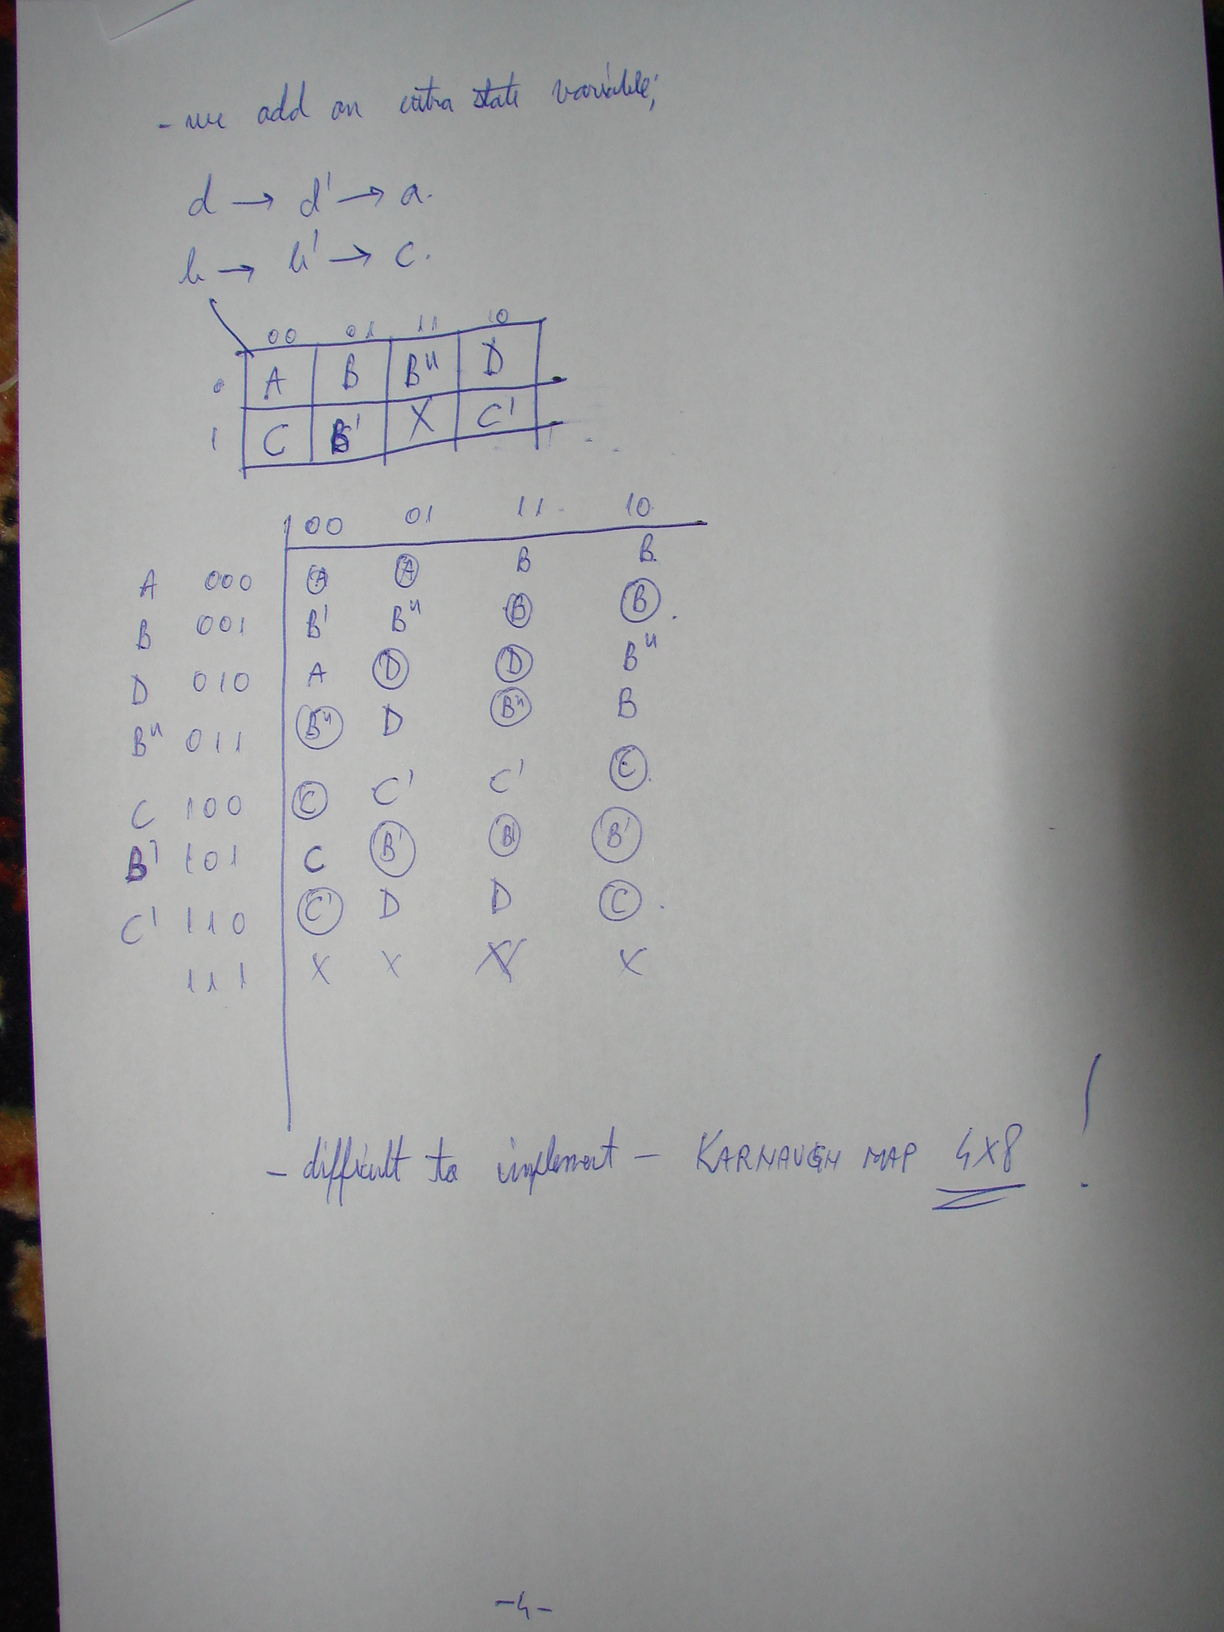 - we add an extra state variable;
d → d' → a.
b → b' → c.
00 01 11 10
0 A B B" D
1 C B' X C'
00 01 11 10
A 000 A A B B
B 001 B' B" B B
D 010 A D D B"
B" 011 B" D B" B
C 100 C C' C' C
B' 101 C B' B' B'
C' 110 C' D D C
111 X X X X
- difficult to implement - KARNAUGH MAP 4X8 !
-4-